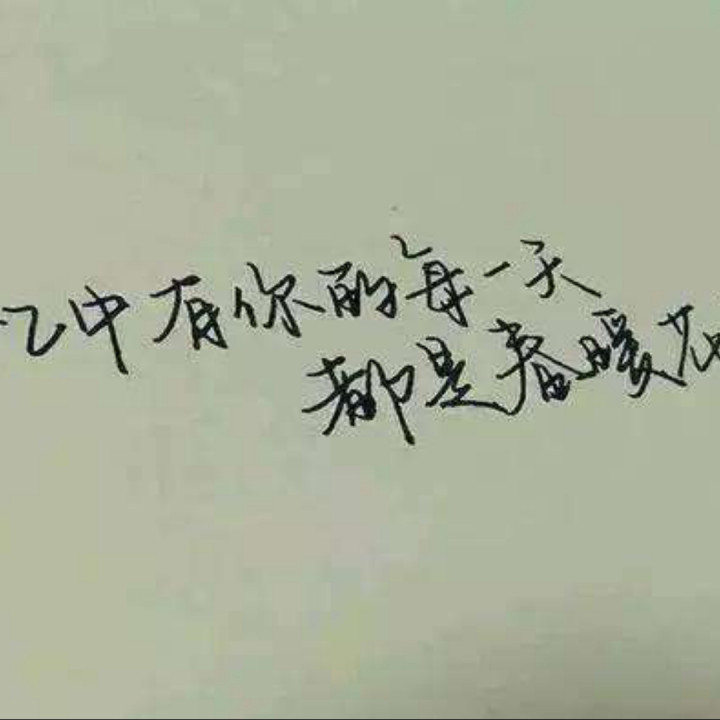 中有你的每一天
都是春暖